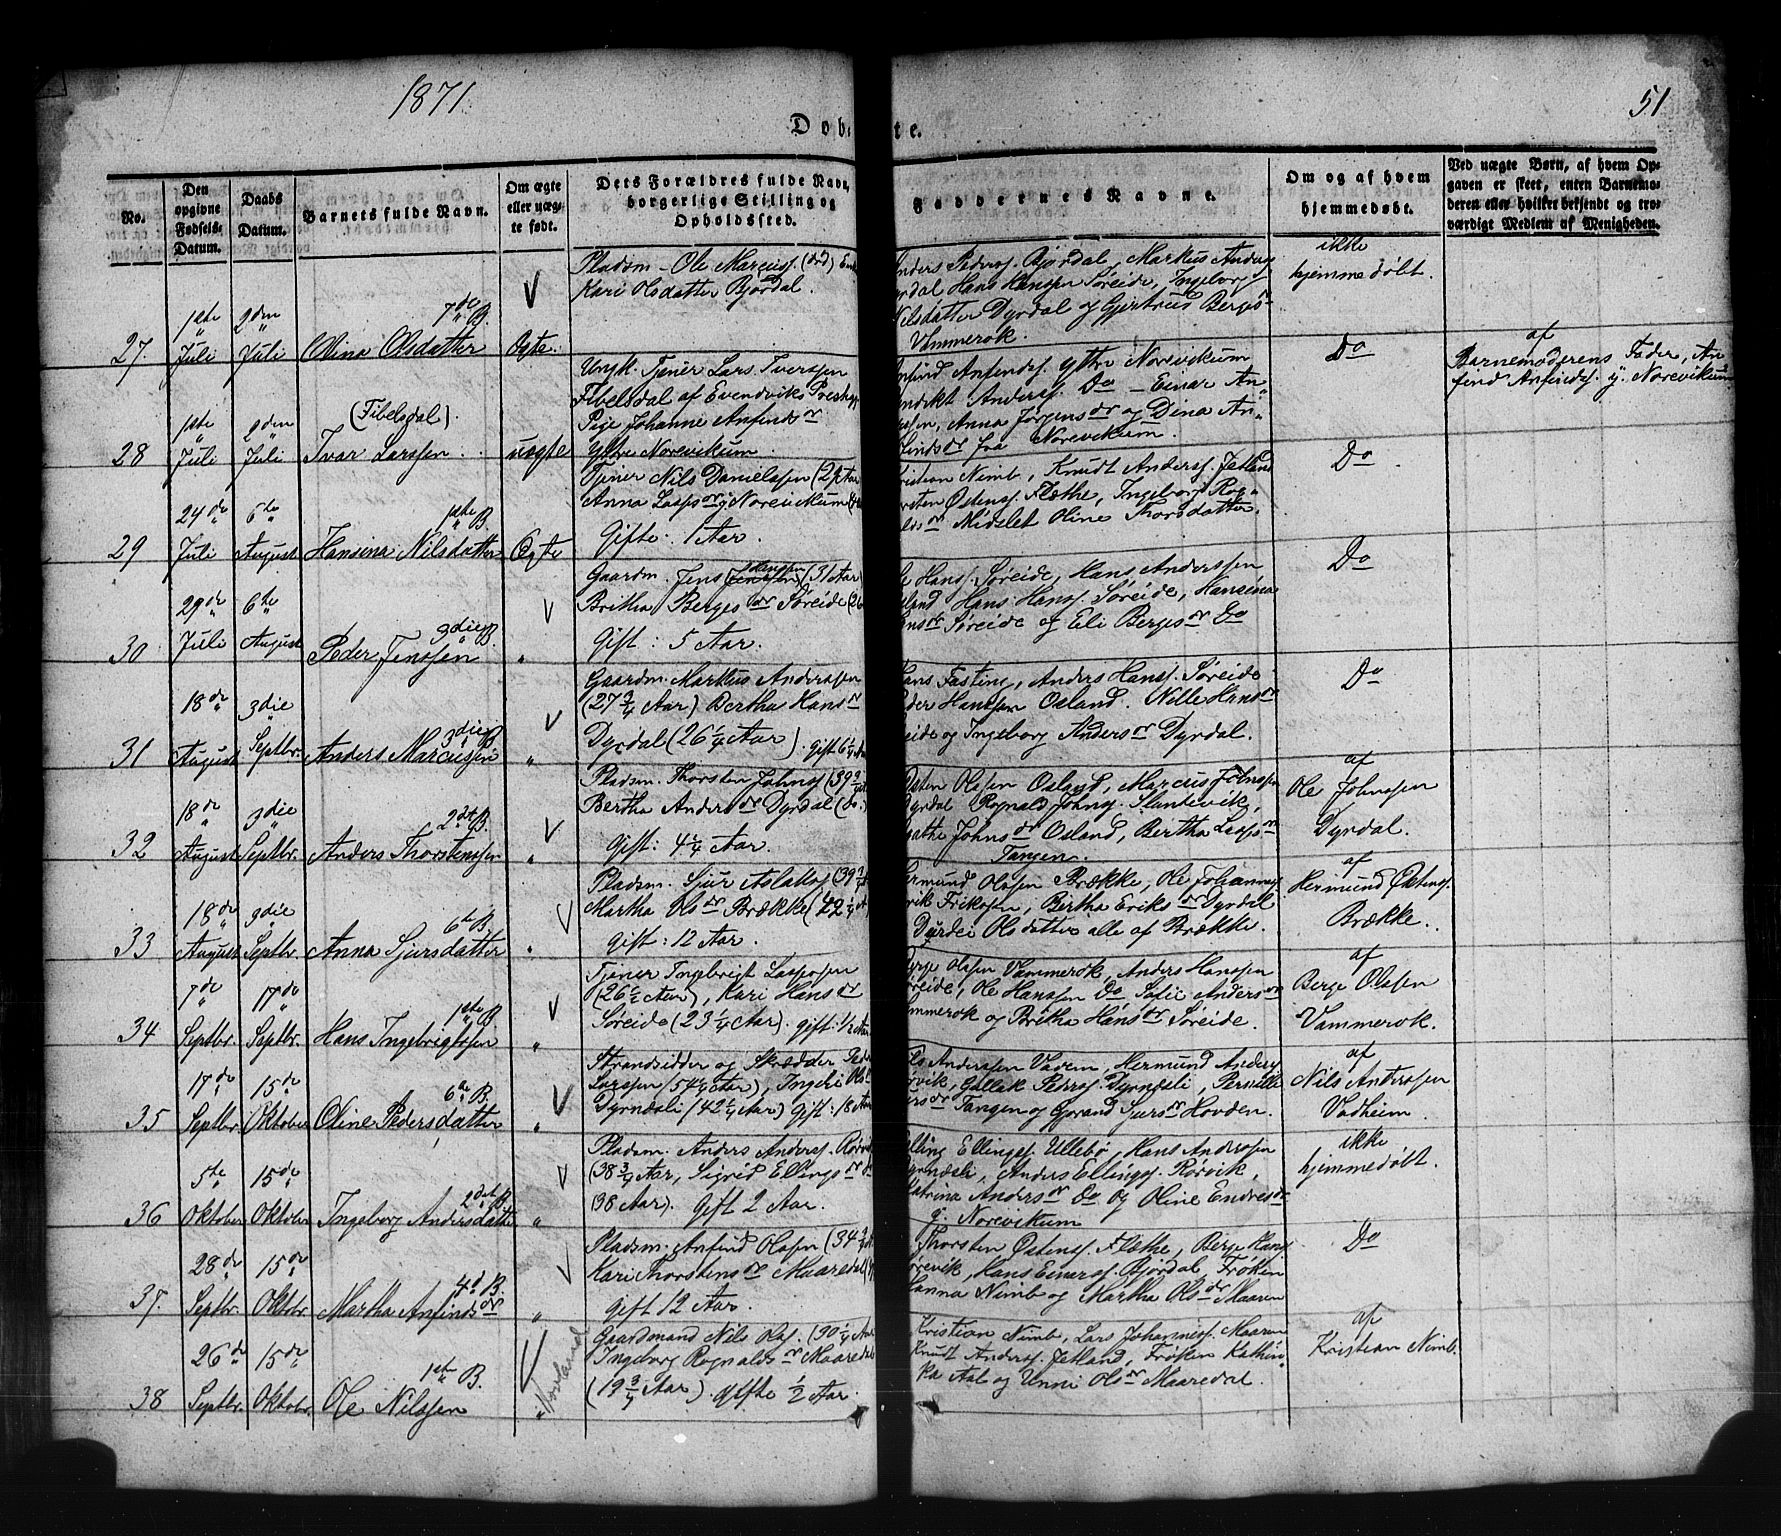 1871
51
Døbte.
No.
Den opgivne Fødsels-Datum.
Daabs Datum.
Barnets fulde Navn.
Om ægte eller uægte født.
Dets Forældres fulde Navn, borgerlige Stilling og Opholdssted.
Faddernes Navne.
Om og af hvem hjemmedøbt.
Ved uægte Børn, af hvem Opgaven er skeet, enten Barnemoderen eller hvilket bekjendt og troværdigt Medlem af Menigheden.
27. 1ste Juli 2den Juli
7de B.
Olina Olsdatter Ægte.
Pladsm - Ole Marcuss. (død)
Kari Olsdatter Bjordal.
Anders Peders. Bjordal, Markus Anders
Dyrdal Hans Hansen Søreide, Ingeborg
Nilsdatter Dyrdal og Gjertrud Berges
Vammerok.
ikke
hjemmedøbt.
28 1ste Juli 2den Juli
(Fibelsdal).
Ivar Larssen. uægte
Ungk. Tjener Lars Iverssen
Fibelsdal af Evendviks Præstegj
Pige Johanne Anfinds dr
Yttre Norevikum.
Anfind Anfinds. Yttre Norevikum
Anders. Do - Einar An
Anna Jørgens dr og Dina An
finds dr fra Norevikum.
Do
af
Barnemoderens Fader, An
find Anfinds. y. Norevikum
29 24de Juli 6te August
1ste B.
Hansina Nilsdatter Ægte
Tjener Nils Danielssen (29 Aar
Anna Lasses dr y Norevikum
Gifte. 1 Aar.
Kristian Nimb, Knudt Anders. Jetland
Østens. Flæthe, Ingeborg Rog
Midelet Oline Thorsdatter.
Do
30 29de Juli 6te August
3die B.
Peder Jenssen "
Gaardm. Jens Hanssen (31 Aar
Britha Berges dr Søreide (26
Gift: 5 Aar.
Ole Hans. Søreide, Hans Anderssen
Osland Hans Hans. Søreide, Hansina
Hans dr Søreide og Eli Berges dr Do
Do
31 18de August 3die Septbr.
3die B.
Anders Marcussen "
Gaardm. Markus Anderssen
(27 3/4 Aar) Bertha Hans dr
Dyrdal (26 1/4 Aar). gift 6 1/4 Aar
Hans Fasting, Anders Hans. Søreide
Peder Hansen Osland. Nille Hans dr
Søreide og Ingeborg Anders dr Dyrdal.
Do
32 18de August 3die Septbr.
2det B.
Anders Thorstenssen "
Pladsm. Thorsten Johns (39
Bertha Anders dr Dyrdal (do.)
Gift: 4 1/4 Aar.
Østen Olssen Osland, Marcus Johnssen
Dyrdal Rognald Johns. Slantevik,
Agathe Johns dr Osland, Bertha Lasses dr
Tangen.
af
Ole Johnssen
Dyrdal.
33 18de August 3die Septbr.
6te B.
Anna Sjursdatter "
Pladsm. Sjur Aslaks (39
Martha Ols dr Brække (42 1/4
gift: 12 Aar.
Hermund Olssen Brække, Ole Johannes
Erik Erikssen, Bertha Eriks dr Dyrdal
Dyrdei Olsdatter alle af Brække.
af
Hermund Østens.
Brække.
34 7de Septbr. 17de Septbr.
1ste B.
Hans Ingebrigtssen "
Tjener Ingebrigt Lassessen
(26 1/2 Aar), Kari Hans dr
Søreide (23 1/4 Aar). gift: 1/2 Aar
Berge Olssen Vammerok, Anders Hanssen
Søreide, Ole Hanssen Do, Sofie Anders dr
Vammerok og Britha Hans dr Søreide.
af
Berge Olssen
Vammerok.
35 17de Septbr. 15de Oktober
6te B.
Oline Pedersdatter "
Strandsidder og Skrædder Peder
Larssen (54 1/4 Aar), Ingeri Ols
Dyrndali (42 1/4 Aar) gift: 18 Aar
Nils Anderssen Vadem, Hermund Anders
Rørvik, Gullik Peders. Dyrndali, Pernille
Tangen og Gjorand Sjurs dr Hovden.
af
Nils Anderssen
Vadheim.
36 5te Oktober 15de Oktober
2det B.
Ingeborg Andersdatter "
Pladsm. Anders Anders. Rørvik
(38 3/4 Aar, Sigrid Ellings dr
(38 Aar). Gift 2 Aar.
Elling Ellings. Ullebø, Hans Anderssen
Dyrndali, Anders Ellings. Rørvik,
Katrina Anders dr Do og Oline Endres dr
y. Norevikum
ikke
hjemmedøbt.
37. 28de Septbr. 15de Oktobr.
4de B.
Martha Anfinds dr "
Pladsm. Anfind Olssen (34
Kari Thorstens dr Maaredal
gift 12 Aar.
Thorsten Østens. Flæthe, Berge Hans
Rørevik, Hans Einers. Bjordal, Frøken
Hanna Nimb og Martha Ols dr Maaren
Do
38 26de Septbr. 15de Oktobr.
1ste B.
Ole Nilssen "
Gaardmand Nils Ols. (30 1/4 Aar
Ingeborg Rognalds dr Maaredal
(19 3/4 Aar) gifte 1/2 Aar.
Kristian Nimb, Lars Johannes. Maaren
Knudt Anders. Jetland, Frøken Kathin
ka Aal og Unni Ols dr Maaredal.
af
Kristian Nimb.